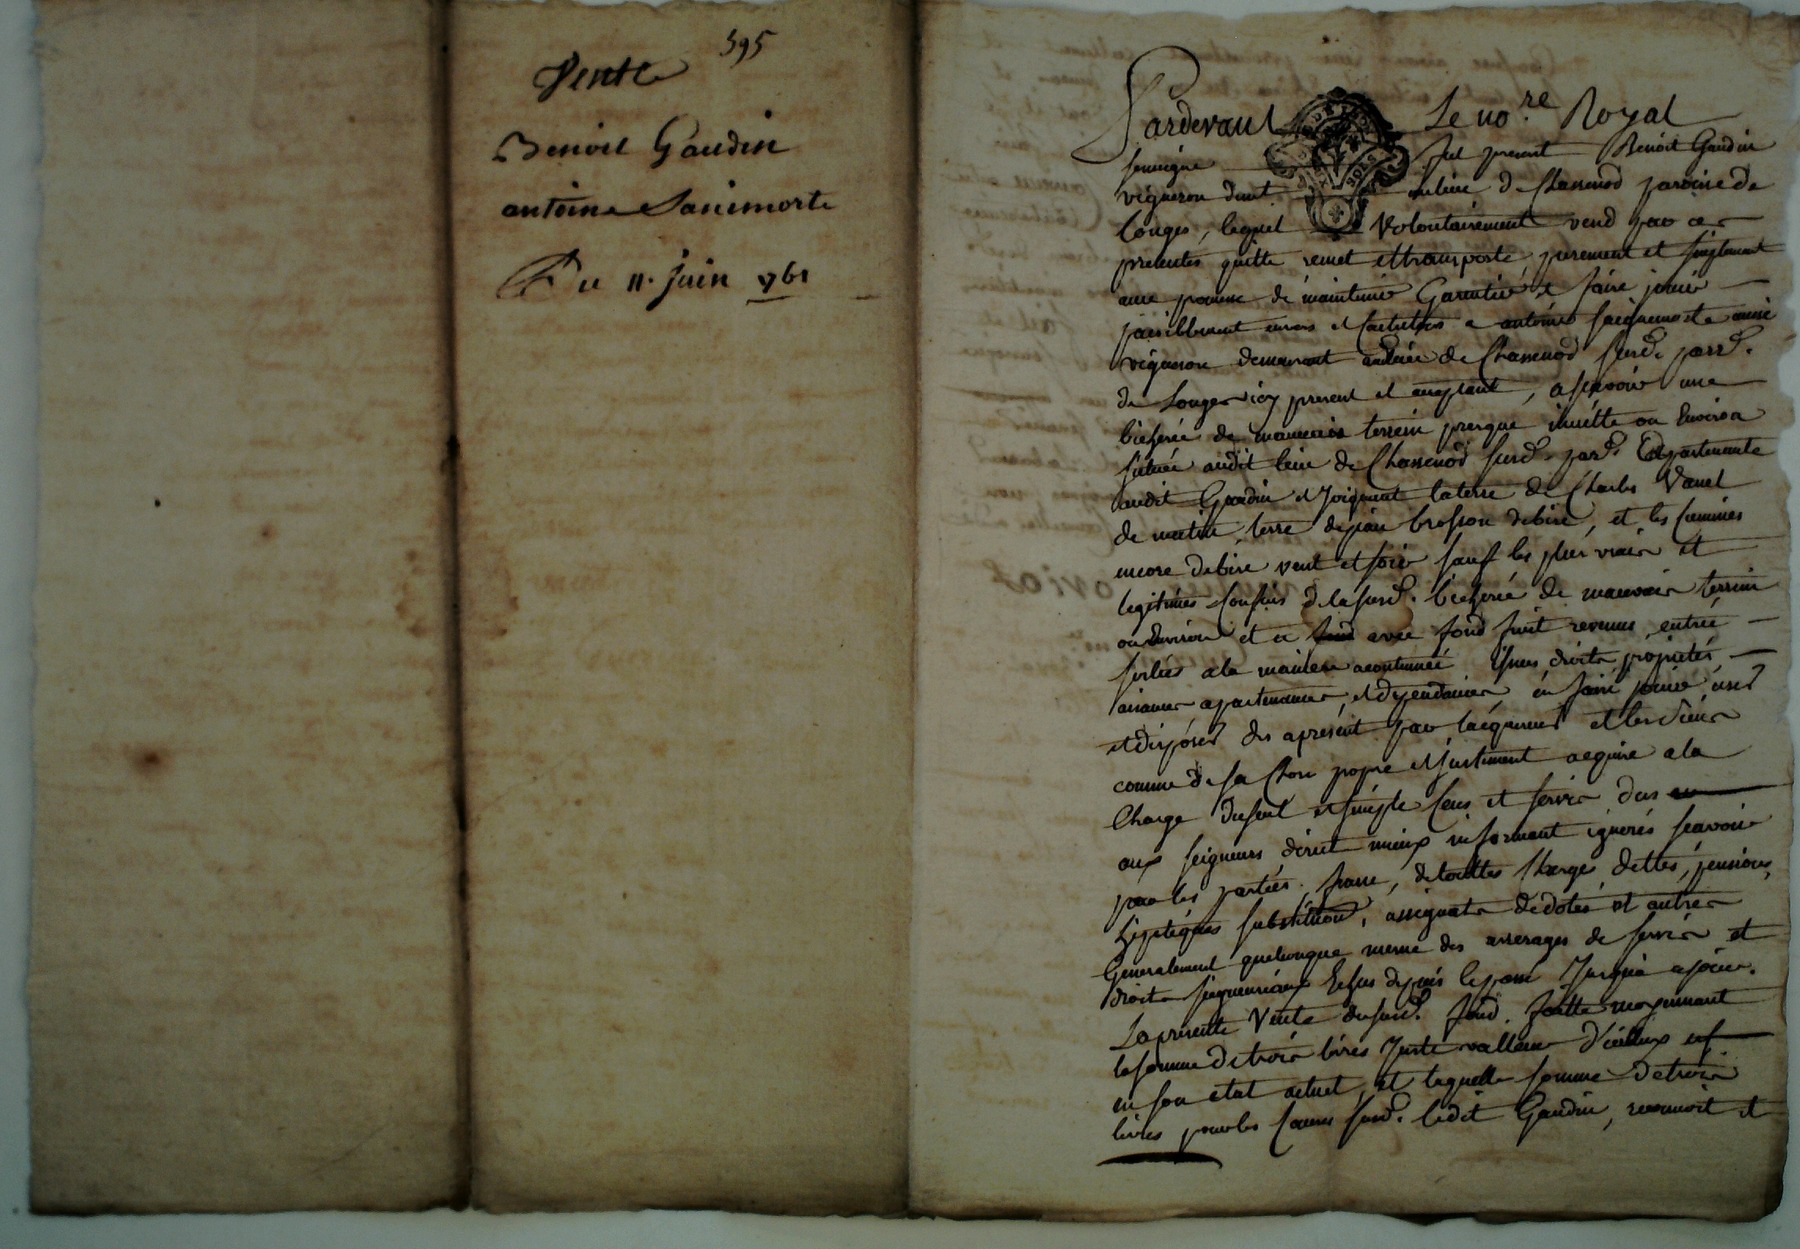 395
Vente
Benoit Gaudin
antoine Janimorte
Du 11. juin 761
Pardevant Le no.re Royal
soussigné fut present Benoit Gaudin
vigneron dem.t au lieu de Chassenod paroisse de
Longes, lequel volontairement vend par ces
presentes quitte remet et transporte purement et simplement
avec promesse de maintenir Garentir et faire jouir
paisiblement envers et contre tous a antoine Jacquemorte aussi
vigneron demeurant au lieu de Chassenod susd. parr.
de Longes icy present et acceptant, a sçavoir une
bicherée de mauvais terrein presque inculte ou Environ
située audit lieu de Chassenod susd. par. Apartenante
audit Gaudin et Joignant la terre de Charles Vanel
de matin, terre de jean brosson de bize, et les chemins
encore de bize vent et soir sauf les plus vrais et
legitimes confins de la susd. bicherée de mauvais terrein
ou Environ et ce avec fond fruit revenus entrée
sorties a la maniere acoutumée Vsues droits proprietés
aisances apartenances et dependances, en faire jouir user
et disposer des apresent par l'acquereur et les siens
comme de sa Chose propre et justement acquise a la
Charge du seul et simple Cens et servis dus
aux seigneurs direct mieux informant ignorés scavoir
par les parties, franc, de touttes Charges dettes, pensions,
hipotéques substitution, assignats de dotes et autres
Generalement quelconque meme des arrerages de servis et
droits seigneuriaux Echus depuis le passé Jusqu'a a jour.
La presente Vente du susd. fond. faitte moyennant
la somme de trois livres Juste valleur d'iceluy
en son etat actuel, et laquelle somme de trois
livres pour les Causes susd. ledit Gaudin, reconnoit et